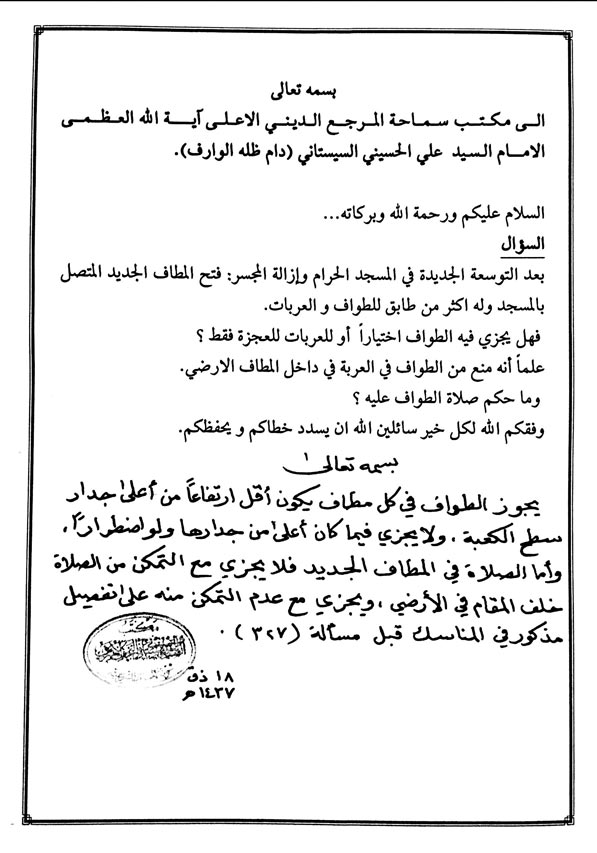 بسمه تعالى
الى مكتب سماحة المرجع الديني الاعلى آية الله العظمى
الامام السيد علي الحسيني السيستاني (دام ظله الوارف).
السلام عليكم ورحمة الله وبركاته...
السؤال
بعد التوسعة الجديدة في المسجد الحرام وإزالة المجسر: فتح المطاف الجديد المتصل
بالمسجد وله اكثر من طابق للطواف و العربات.
فهل يجزي فيه الطواف اختياراً أو للعربات للعجزة فقط ؟
علماً أنه منع من الطواف في العربة في داخل المطاف الارضي.
وما حكم صلاة الطواف عليه ؟
وفقكم الله لكل خير سائلين الله ان يسدد خطاكم و يحفظكم.
بسمه تعالى
يجوز الطواف في كل مطاف يكون أقل ارتفاعاً من أعلى جدار
سطح الكعبة ، ولا يجزي فيما كان أعلى من جدارها ولو اضطراراً ،
وأما الصلاة في المطاف الجديد فلا يجزي مع التمكن من الصلاة
خلف المقام في الأرضي ، ويجزي مع عدم التمكن منه على تفصيل
مذكور في المناسك قبل مسألة (٣٢٧) .
١٨ ذق
١٤٣٧هـ